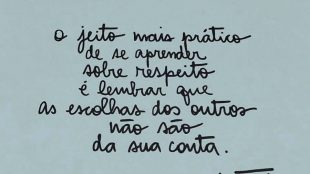 o jeito mais prático
de se aprender
sobre respeito
é lembrar que
as escolhas dos outros
não são
da sua conta.